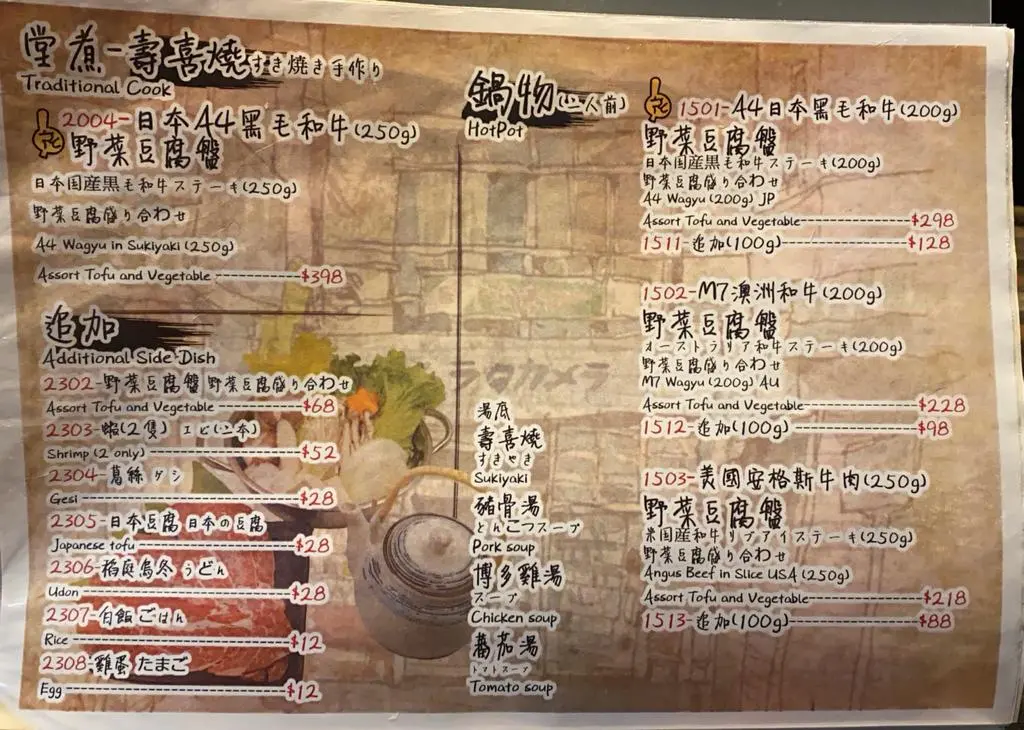 堂煮-壽喜燒すき焼き手作り
Traditional Cook
2004-日本A4黑毛和牛(250g)
野菜豆腐盤
日本国産黒毛和牛ステーキ(250g)
野菜豆腐盛り合わせ
A4 Wagyu in Sukiyaki (250g)
Assort Tofu and Vegetable -----------$398
追加
Additional Side-Dish
2302-野菜豆腐盤 野菜豆腐盛り合わせ
Assort Tofu and Vegetable -----------$68
2303-蝦(2隻) エビ(二本)
Shrimp (2 only) -----------$52
2304-葛絲 ゲシ
Gesi -----------$28
2305-日本豆腐 日本の豆腐
Japanese tofu -----------$28
2306-稻庭烏冬 うどん
Udon -----------$28
2307-白飯 ごはん
Rice -----------$12
2308-雞蛋 たまご
Egg -----------$12
鍋物(二人前)
HotPot
湯底
壽喜燒
すきやき
Sukiyaki
豬骨湯
とんこつスープ
Pork soup
博多雞湯
スープ
Chicken soup
蕃茄湯
トマトスープ
Tomato soup
1501-A4日本黑毛和牛(200g)
野菜豆腐盤
日本国産黒毛和牛ステーキ(200g)
野菜豆腐盛り合わせ
A4 Wagyu (200g) JP
Assort Tofu and Vegetable-----------$298
1511-追加(100g)-----------$128
1502-M7澳洲和牛(200g)
野菜豆腐盤
オーストラリア和牛ステーキ(200g)
野菜豆腐盛り合わせ
M7 Wagyu (200g) AU
Assort Tofu and Vegetable-----------$228
1512-追加(100g)-----------$98
1503-美國安格斯牛肉(250g)
野菜豆腐盤
米国産和牛リブアイステーキ(250g)
野菜豆腐盛り合わせ
Angus Beef in Slice USA (250g)
Assort Tofu and Vegetable-----------$218
1513-追加(100g)-----------$88